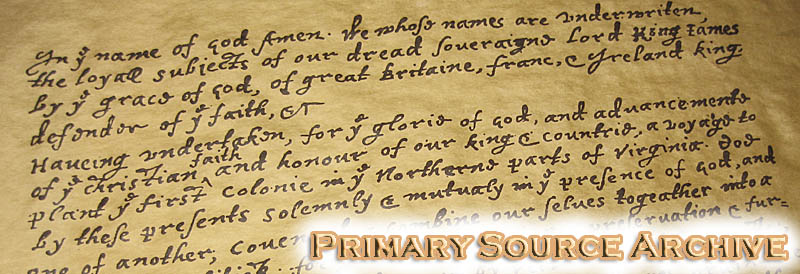 In yͤ name of God Amen· We whose names are vnderwriten,
the loyall subjects of our dread soveraigne Lord King James
by yͤ grace of God, of great Britaine, franc, & Ireland king,
defender of yͤ faith, &c
Haveing vndertaken, for yͤ glorie of God, and advancemente
of yͤ christian faith and honour of our king & countrie, a voyage to
plant yͤ first colonie in yͤ Northerne parts of Virginia· Doe
by these presents solemnly & mutualy in yͤ presence of God, and
one of another, combine our selves togeather into a
preservation & fur-
PRIMARY SOURCE ARCHIVE